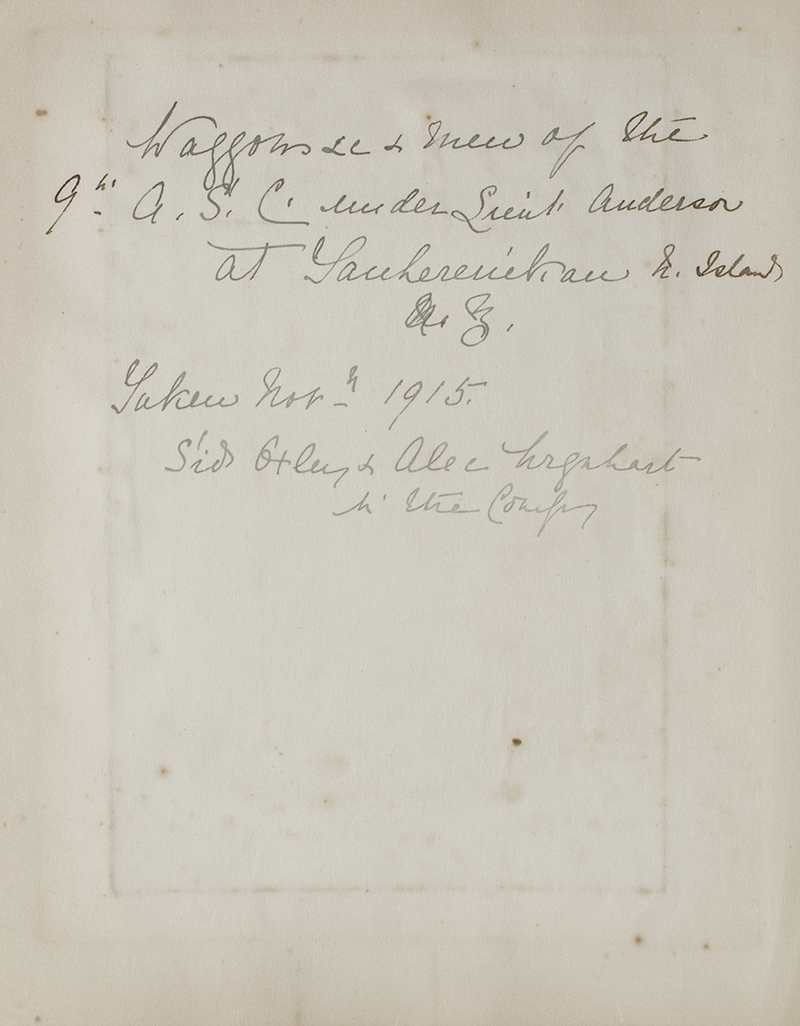 Waggons &c & men of the
9th A. S. C. under Lieut Anderson
at Tauherenikau N. Island
N. Z.
Taken Novr 1915.
Sid Oxley & Alec Urquhart
in the Compy